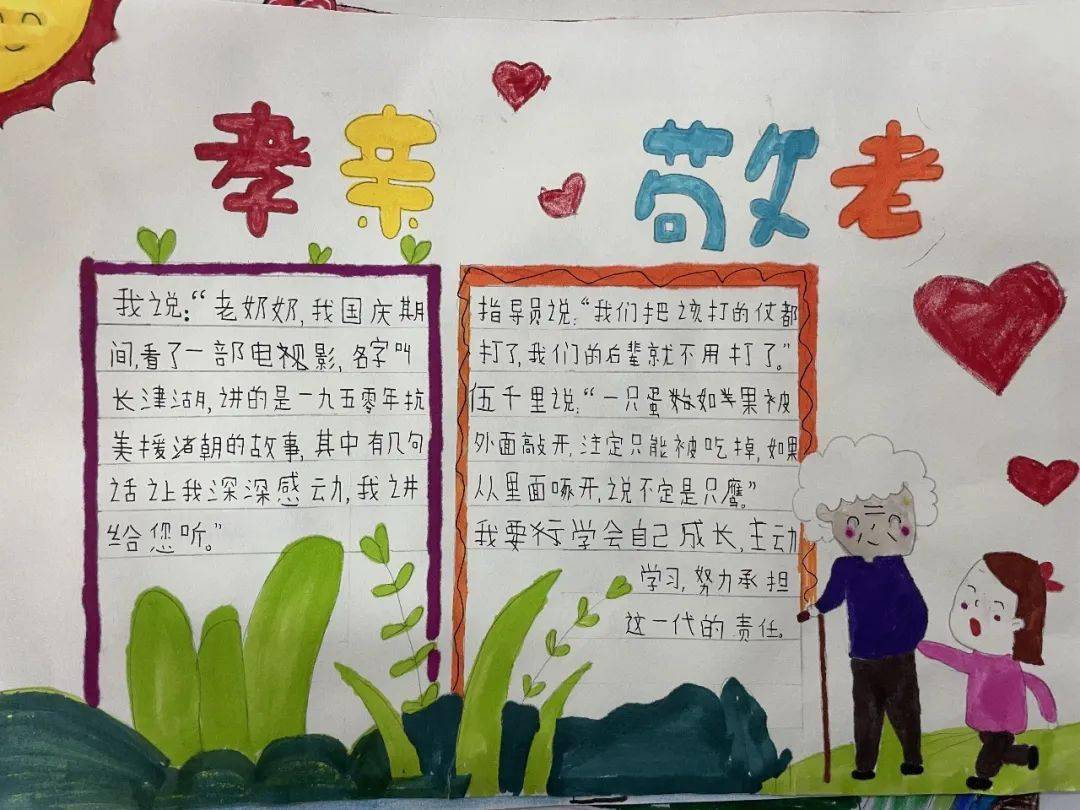 孝亲·敬老
我说：“老奶奶，我国庆期
间，看了一部电视影，名字叫
长津湖，讲的是一九五零年抗
美援朝的故事，其中有几句
话让我深深感动，我讲
给您听。”
指导员说：“我们把该打的仗都
打了，我们的后辈就不用打了。”
伍千里说：“一只蛋如果被
外面敲开，注定只能被吃掉，如果
从里面啄开，说不定是只鹰。”
我要学会自己成长，主动
学习，努力承担
这一代的责任。